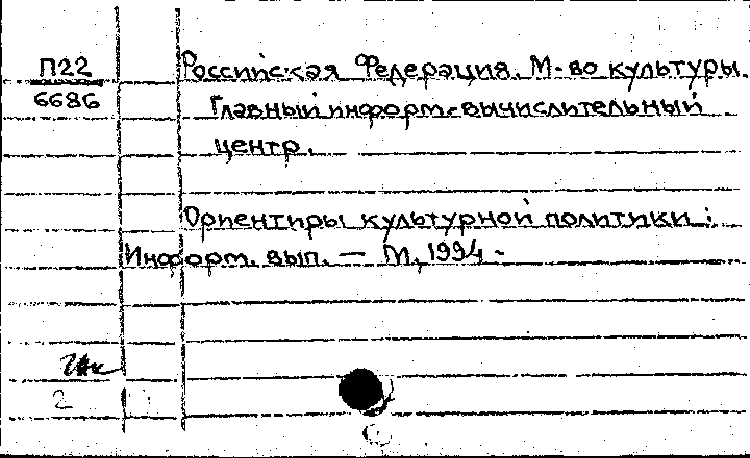 П22
6686
Российская Федерация. М-во культуры.
Главный информ.-вычислительный
центр.
Ориентиры культурной политики:
Информ. вып. — М., 1994 -
2